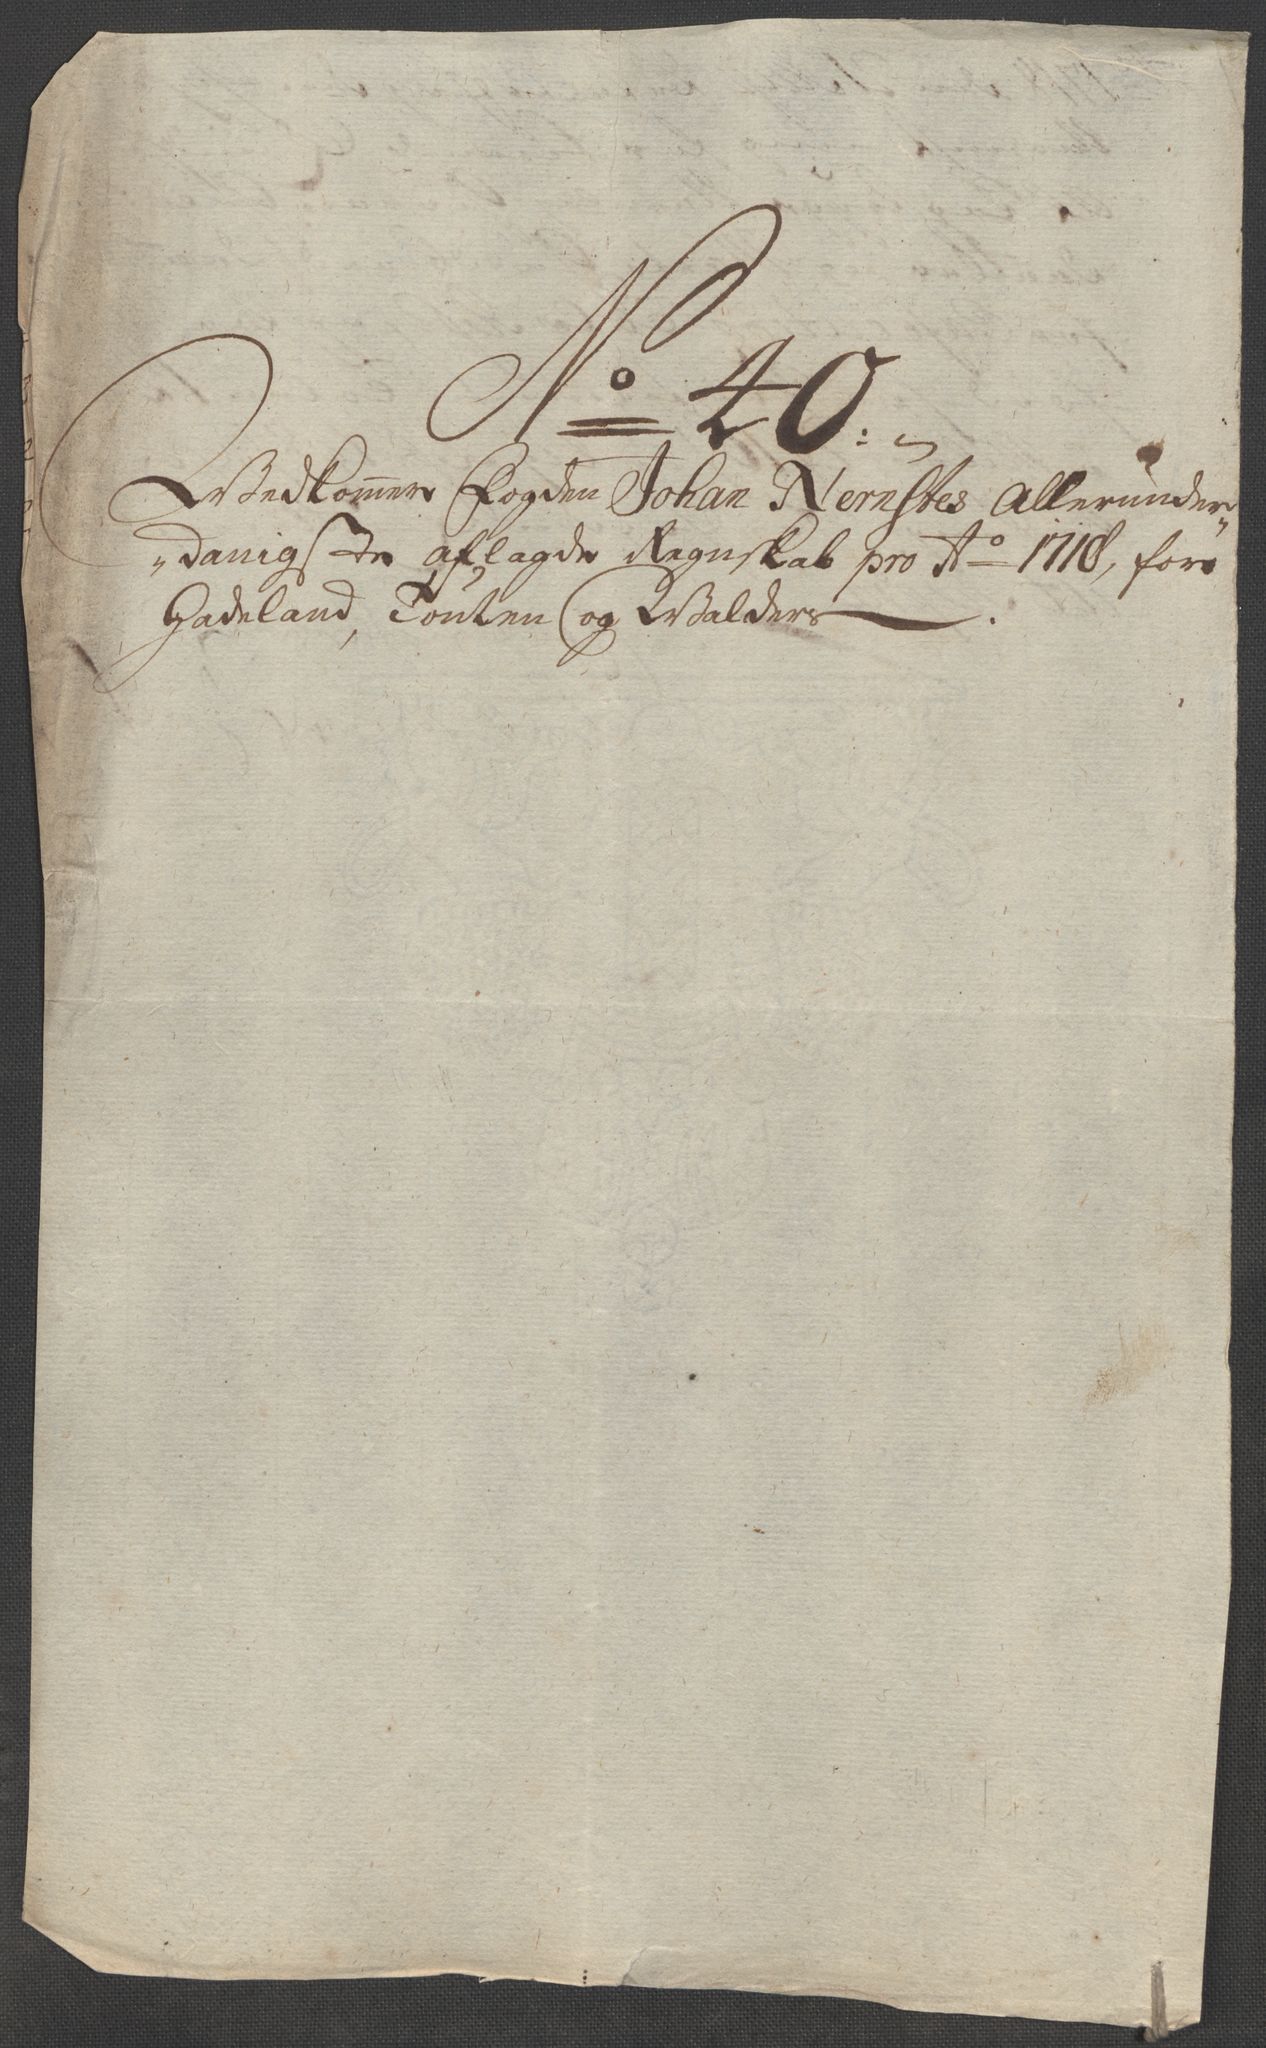 No 40.
Wedkommer Fogden Johan Nernstes Allerunder„
„danigste aflagde Regnskab pro Ao 1718, for
Hadeland, Touten og Walders.